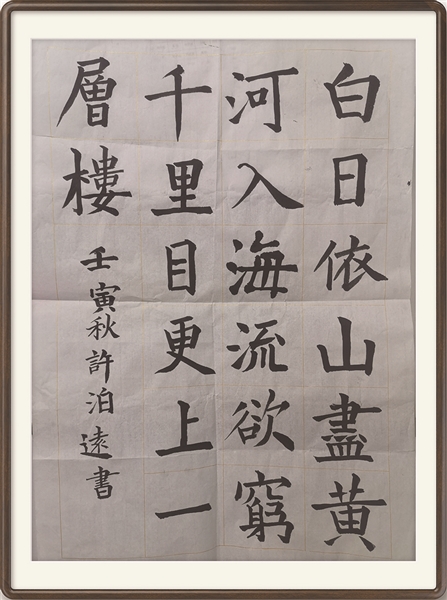 白日依山盡黃
河入海流欲窮
千里目更上一
層樓
壬寅秋許泊遠書